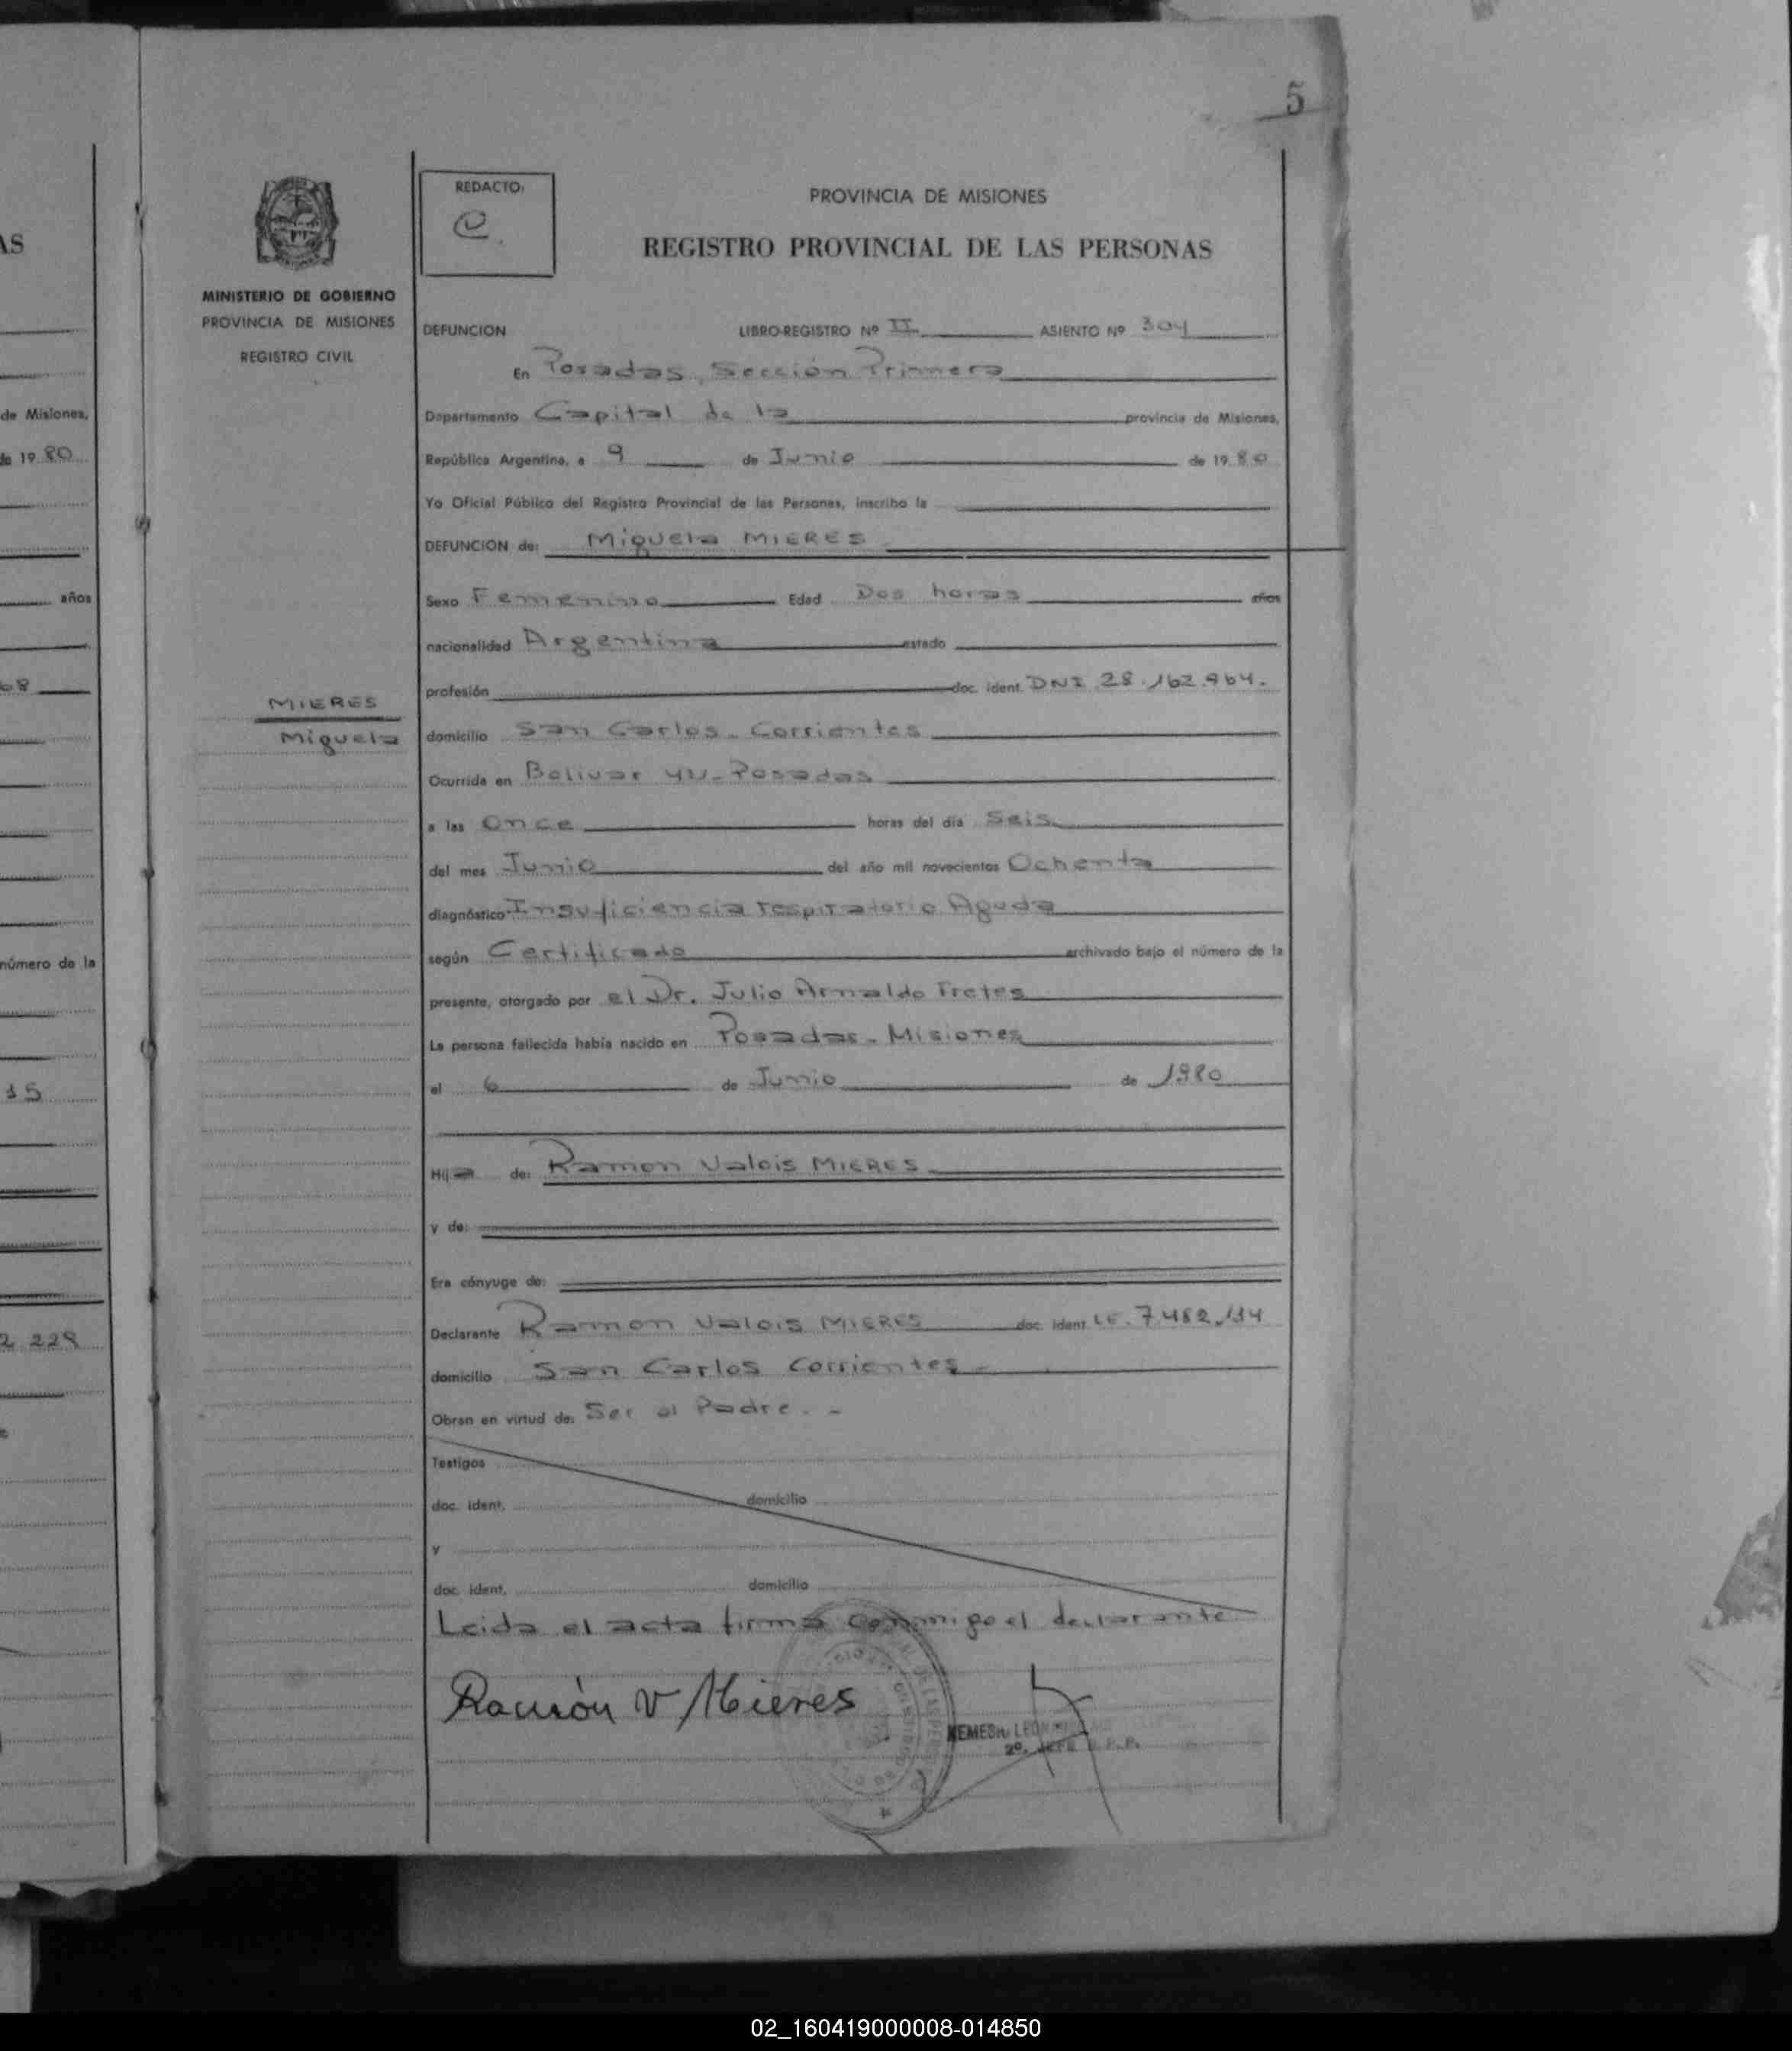 5
AS
de Misiones,
de 19 80
años
68
número de la
15
2 229
MINISTERIO DE GOBIERNO
PROVINCIA DE MISIONES
REGISTRO CIVIL
MIERES
Miguela
REDACTO:
PROVINCIA DE MISIONES
REGISTRO PROVINCIAL DE LAS PERSONAS
DEFUNCION LIBRO-REGISTRO Nº II ASIENTO Nº 304
En Posadas, Sección Primera
Departamento Capital de la provincia de Misiones,
República Argentina, a 9 de Junio de 19 80
Yo Oficial Público del Registro Provincial de las Personas, inscribo la
DEFUNCION de: Miguela MIERES
Sexo Femenino Edad Dos horas años
nacionalidad Argentina estado
profesión doc. ident. DNI 28.162.964.
domicilio San Carlos - Corrientes
Ocurrida en Bolivar - Posadas
a las Once horas del día Seis
del mes Junio del año mil novecientos Ochenta
diagnóstico Insuficiencia respiratorio Aguda
según Certificado archivado bajo el número de la
presente, otorgado por el Dr. Julio Arnaldo Fretes
La persona fallecida había nacido en Posadas - Misiones
el 6 de Junio de 1980
Hija de: Ramon Valois MIERES
y de:
Era cónyuge de:
Declarante Ramon Valois MIERES doc. ident. LE. 7.482.134
domicilio San Carlos Corrientes -
Obran en virtud de: Ser el Padre. -
Testigos
doc. ident. domicilio
y
doc. ident. domicilio
Leida el acta firma conmigo el declarante
Ramón V Mieres
NEMESIO
2º. JEFE R.P.P.
02_160419000008-014850